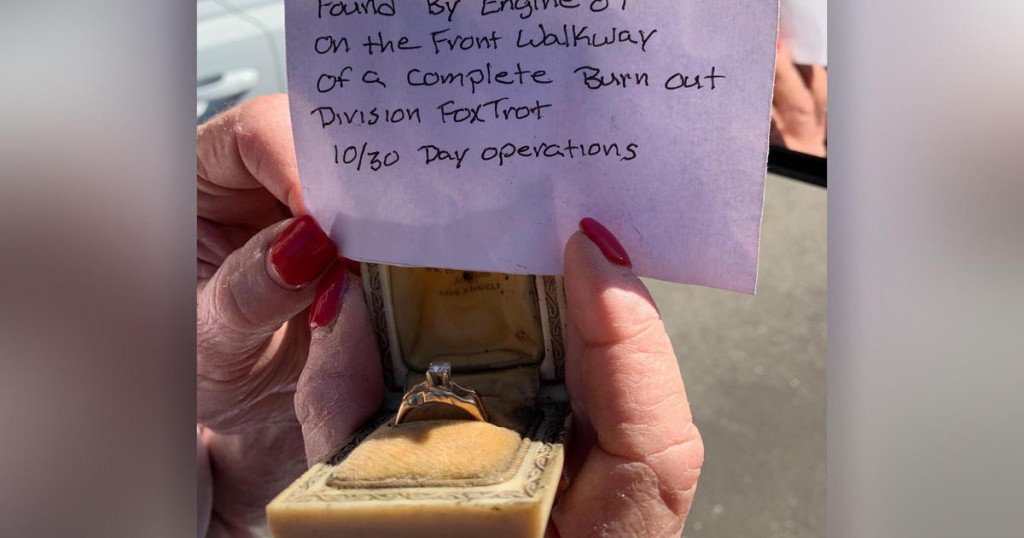 Found By Engine
on the Front Walkway
of a Complete Burn out
Division FoxTrot
10/30 Day operations